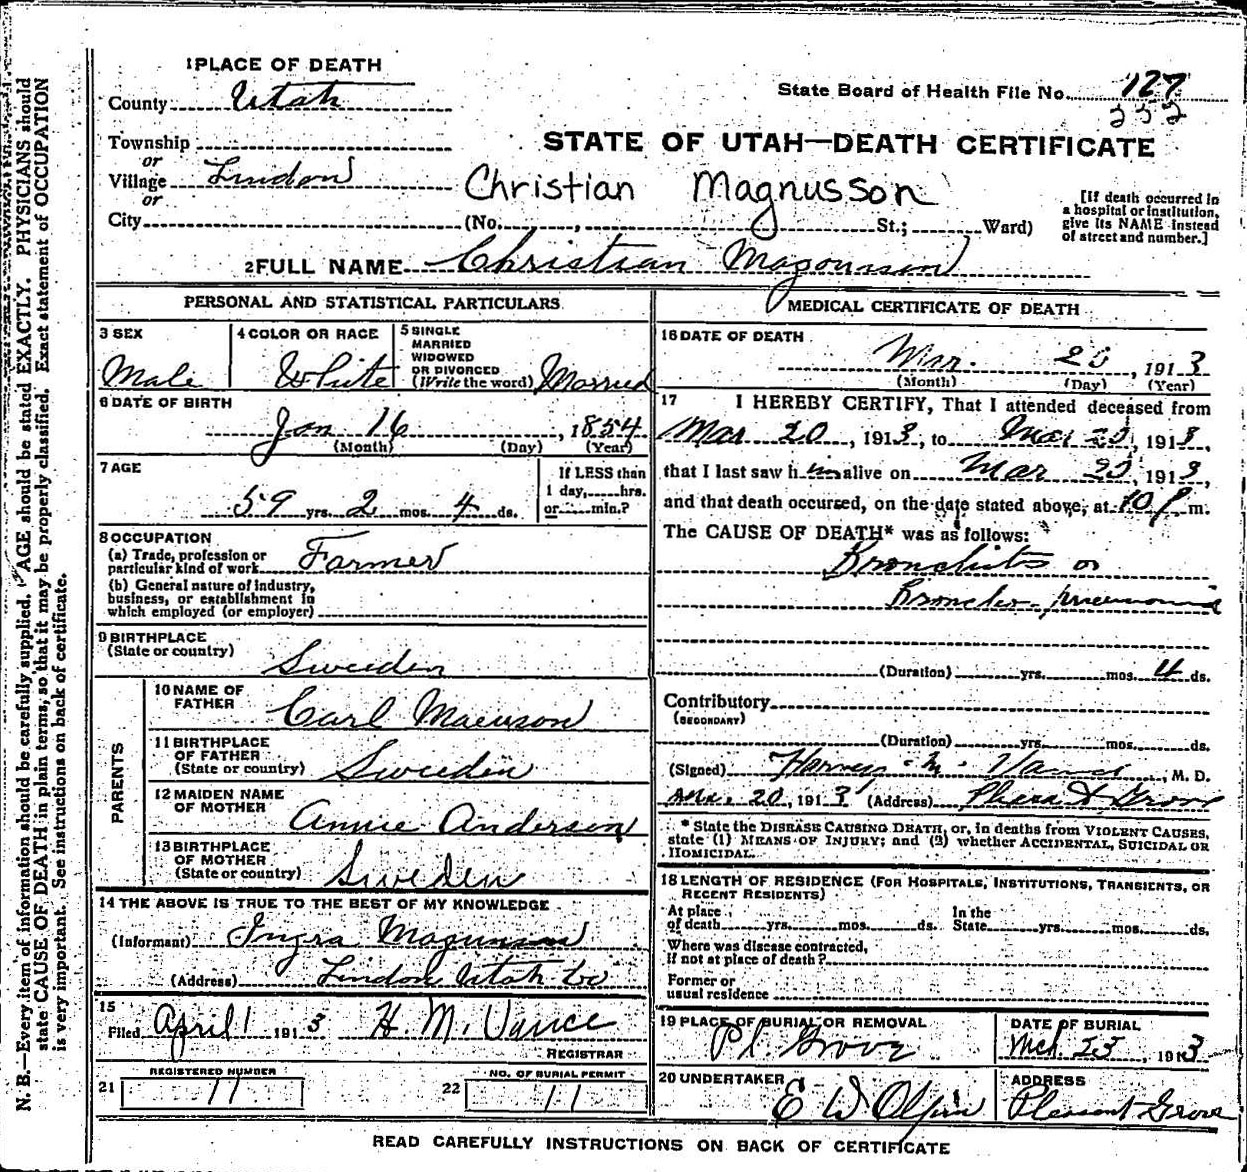 1 PLACE OF DEATH
County Utah
State Board of Health File No. 127
232
Township
or
Village Lindon
or
City
STATE OF UTAH—DEATH CERTIFICATE
Christian Magnusson
(No. , St.; Ward)
[If death occurred in a hospital or institution, give its NAME instead of street and number.]
2 FULL NAME Christian Magounson
PERSONAL AND STATISTICAL PARTICULARS
3 SEX
Male
4 COLOR OR RACE
White
5 SINGLE MARRIED WIDOWED OR DIVORCED (Write the word) Married
6 DATE OF BIRTH
Jan 16, 1854
(Month) (Day) (Year)
7 AGE
59 yrs. 2 mos. 4 ds.
If LESS than 1 day, hrs. or min.?
8 OCCUPATION
(a) Trade, profession or particular kind of work Farmer
(b) General nature of industry, business, or establishment in which employed (or employer)
9 BIRTHPLACE
(State or country)
Sweeden
PARENTS
10 NAME OF FATHER Carl Maenson
11 BIRTHPLACE OF FATHER (State or country) Sweeden
12 MAIDEN NAME OF MOTHER Annie Anderson
13 BIRTHPLACE OF MOTHER (State or country) Sweden
14 THE ABOVE IS TRUE TO THE BEST OF MY KNOWLEDGE
(Informant) Ingra Magunson
(Address) Lindon Utah Co
15
Filed April 1 1913 H. M. Vance
REGISTRAR
REGISTERED NUMBER
21 11
NO. OF BURIAL PERMIT
22 11
MEDICAL CERTIFICATE OF DEATH
16 DATE OF DEATH
Mar. 20, 1913
(Month) (Day) (Year)
17 I HEREBY CERTIFY, That I attended deceased from
Mar 20, 1913, to Mar 20, 1913,
that I last saw h im alive on Mar 20, 1913,
and that death occurred, on the date stated above, at 10 P m.
The CAUSE OF DEATH* was as follows:
Bronchitis or
Broncho-pneumonia
(Duration) yrs. mos. 4 ds.
Contributory
(SECONDARY)
(Duration) yrs. mos. ds.
(Signed) M. Vance, M. D.
20, 1913 (Address) Grove
* State the DISEASE CAUSING DEATH, or, in deaths from VIOLENT CAUSES,
state (1) MEANS OF INJURY; and (2) whether ACCIDENTAL, SUICIDAL OR
HOMICIDAL.
18 LENGTH OF RESIDENCE (FOR HOSPITALS, INSTITUTIONS, TRANSIENTS, OR
RECENT RESIDENTS)
At place of death yrs. mos. ds. In the State yrs. mos. ds.
Where was disease contracted,
if not at place of death?
Former or
usual residence
19 PLACE OF BURIAL OR REMOVAL
Pl. Grove
DATE OF BURIAL
Mch. 23, 1913
20 UNDERTAKER
E W Olpin
ADDRESS
Pleasant Grove
READ CAREFULLY INSTRUCTIONS ON BACK OF CERTIFICATE
N. B.—Every item of information should be carefully supplied. AGE should be stated EXACTLY. PHYSICIANS should
state CAUSE OF DEATH in plain terms, so that it may be properly classified. Exact statement of OCCUPATION
is very important. See instructions on back of certificate.